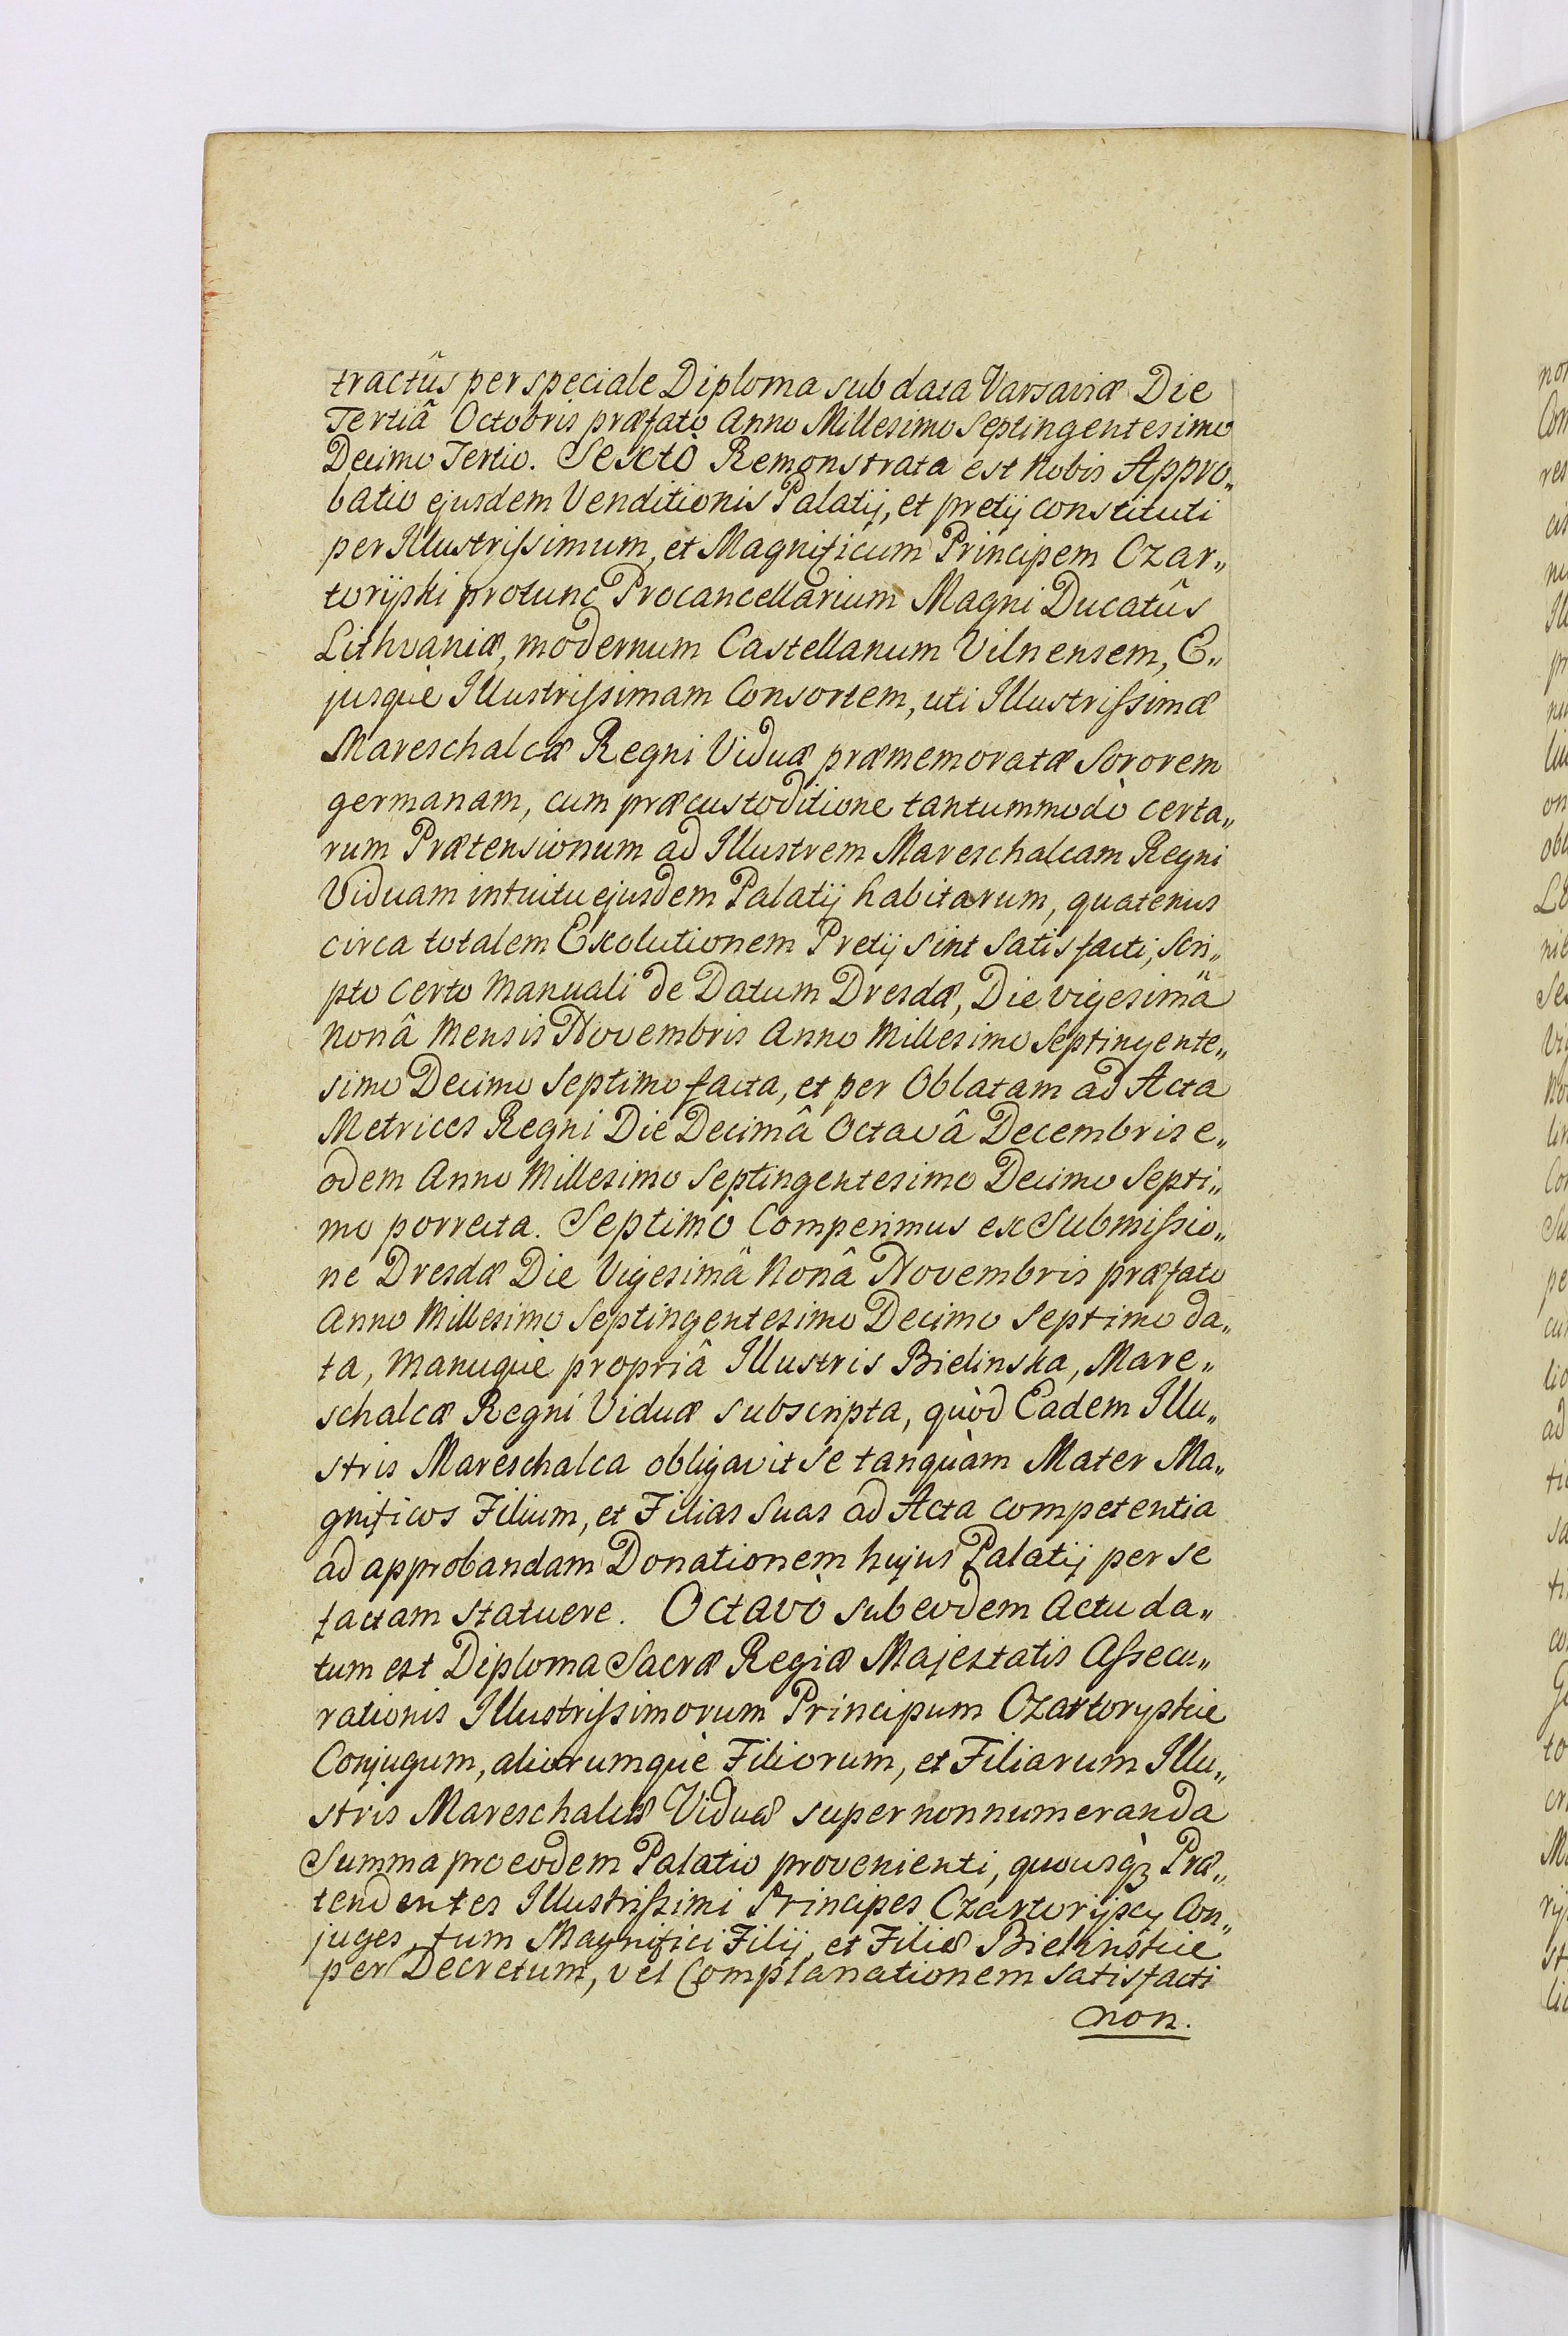 tractûs per speciale Diploma sub data Varsaviæ Die
Tertiâ Octobris præfato Anno Millesimo Septingentesimo
Decimo Tertio. Sextò Remonstrata est Nobis Appro„
batio ejusdem Venditionis Palatij, et pretij constituti
per Illustrißimum, et Magnificum Principem Czar„
toryski protunc Procancellarium Magni Ducatûs
Lithvaniæ, modernum Castellanum Vilnensem, E„
jusquè Illustrißimam Consortem, uti Illustrißimæ
Mareschalcæ Regni Viduæ præmemoratæ Sororem
germanam, cum præcustoditione tantummodò certa„
rum Prætensionum ad Illustrem Mareschalcam Regni
Viduam intuitu ejusdem Palatij habitarum, quatenus
circa totalem Exolutionem Pretij sint satisfacti, Scri„
pto certo Manuali de Datum Dresdæ, Die vigesimâ
Nonâ Mensis Novembris Anno Millesimo Septingente„
simo Decimo Septimo facta, et per Oblatam ad Acta
Metrices Regni Die Decimâ Octavâ Decembris e„
odem Anno Millesimo Septingentesimo Decimo Septi„
mo porrecta. Septimò Comperimus ex Submißio„
ne Dresdæ Die Vigesimâ Nonâ Novembris præfato
Anno Millesimo Septingentesimo Decimo Septimo da„
ta, Manuquè propriâ Illustris Bielinska, Mare„
schalcæ Regni Viduæ subscripta, quòd Eadem Illu„
stris Mareschalca obligavit se tanquàm Mater Ma„
gnificos Filium, et Filias Suas ad Acta competentia
ad approbandam Donationem hujus Palatij per se
factam statuere. Octavò sub eodem Actu da„
tum est Diploma Sacræ Regiæ Majestatis Aßecu„
rationis Illustrißimorum Principum Czartoryskie
Conjugum, aliorumquè Filiorum, et Filiarum Illu„
stris Mareschalcæ Viduæ super non numeranda
Summa pro eodem Palatio provenienti, quousq3 Præ„
tendentes Illustrißimi Principes Czartoryscy Con„
juges, tum Magnifici Filij, et Filiæ Bielinskie
per Decretum, vel Complanationem satisfacti
non.